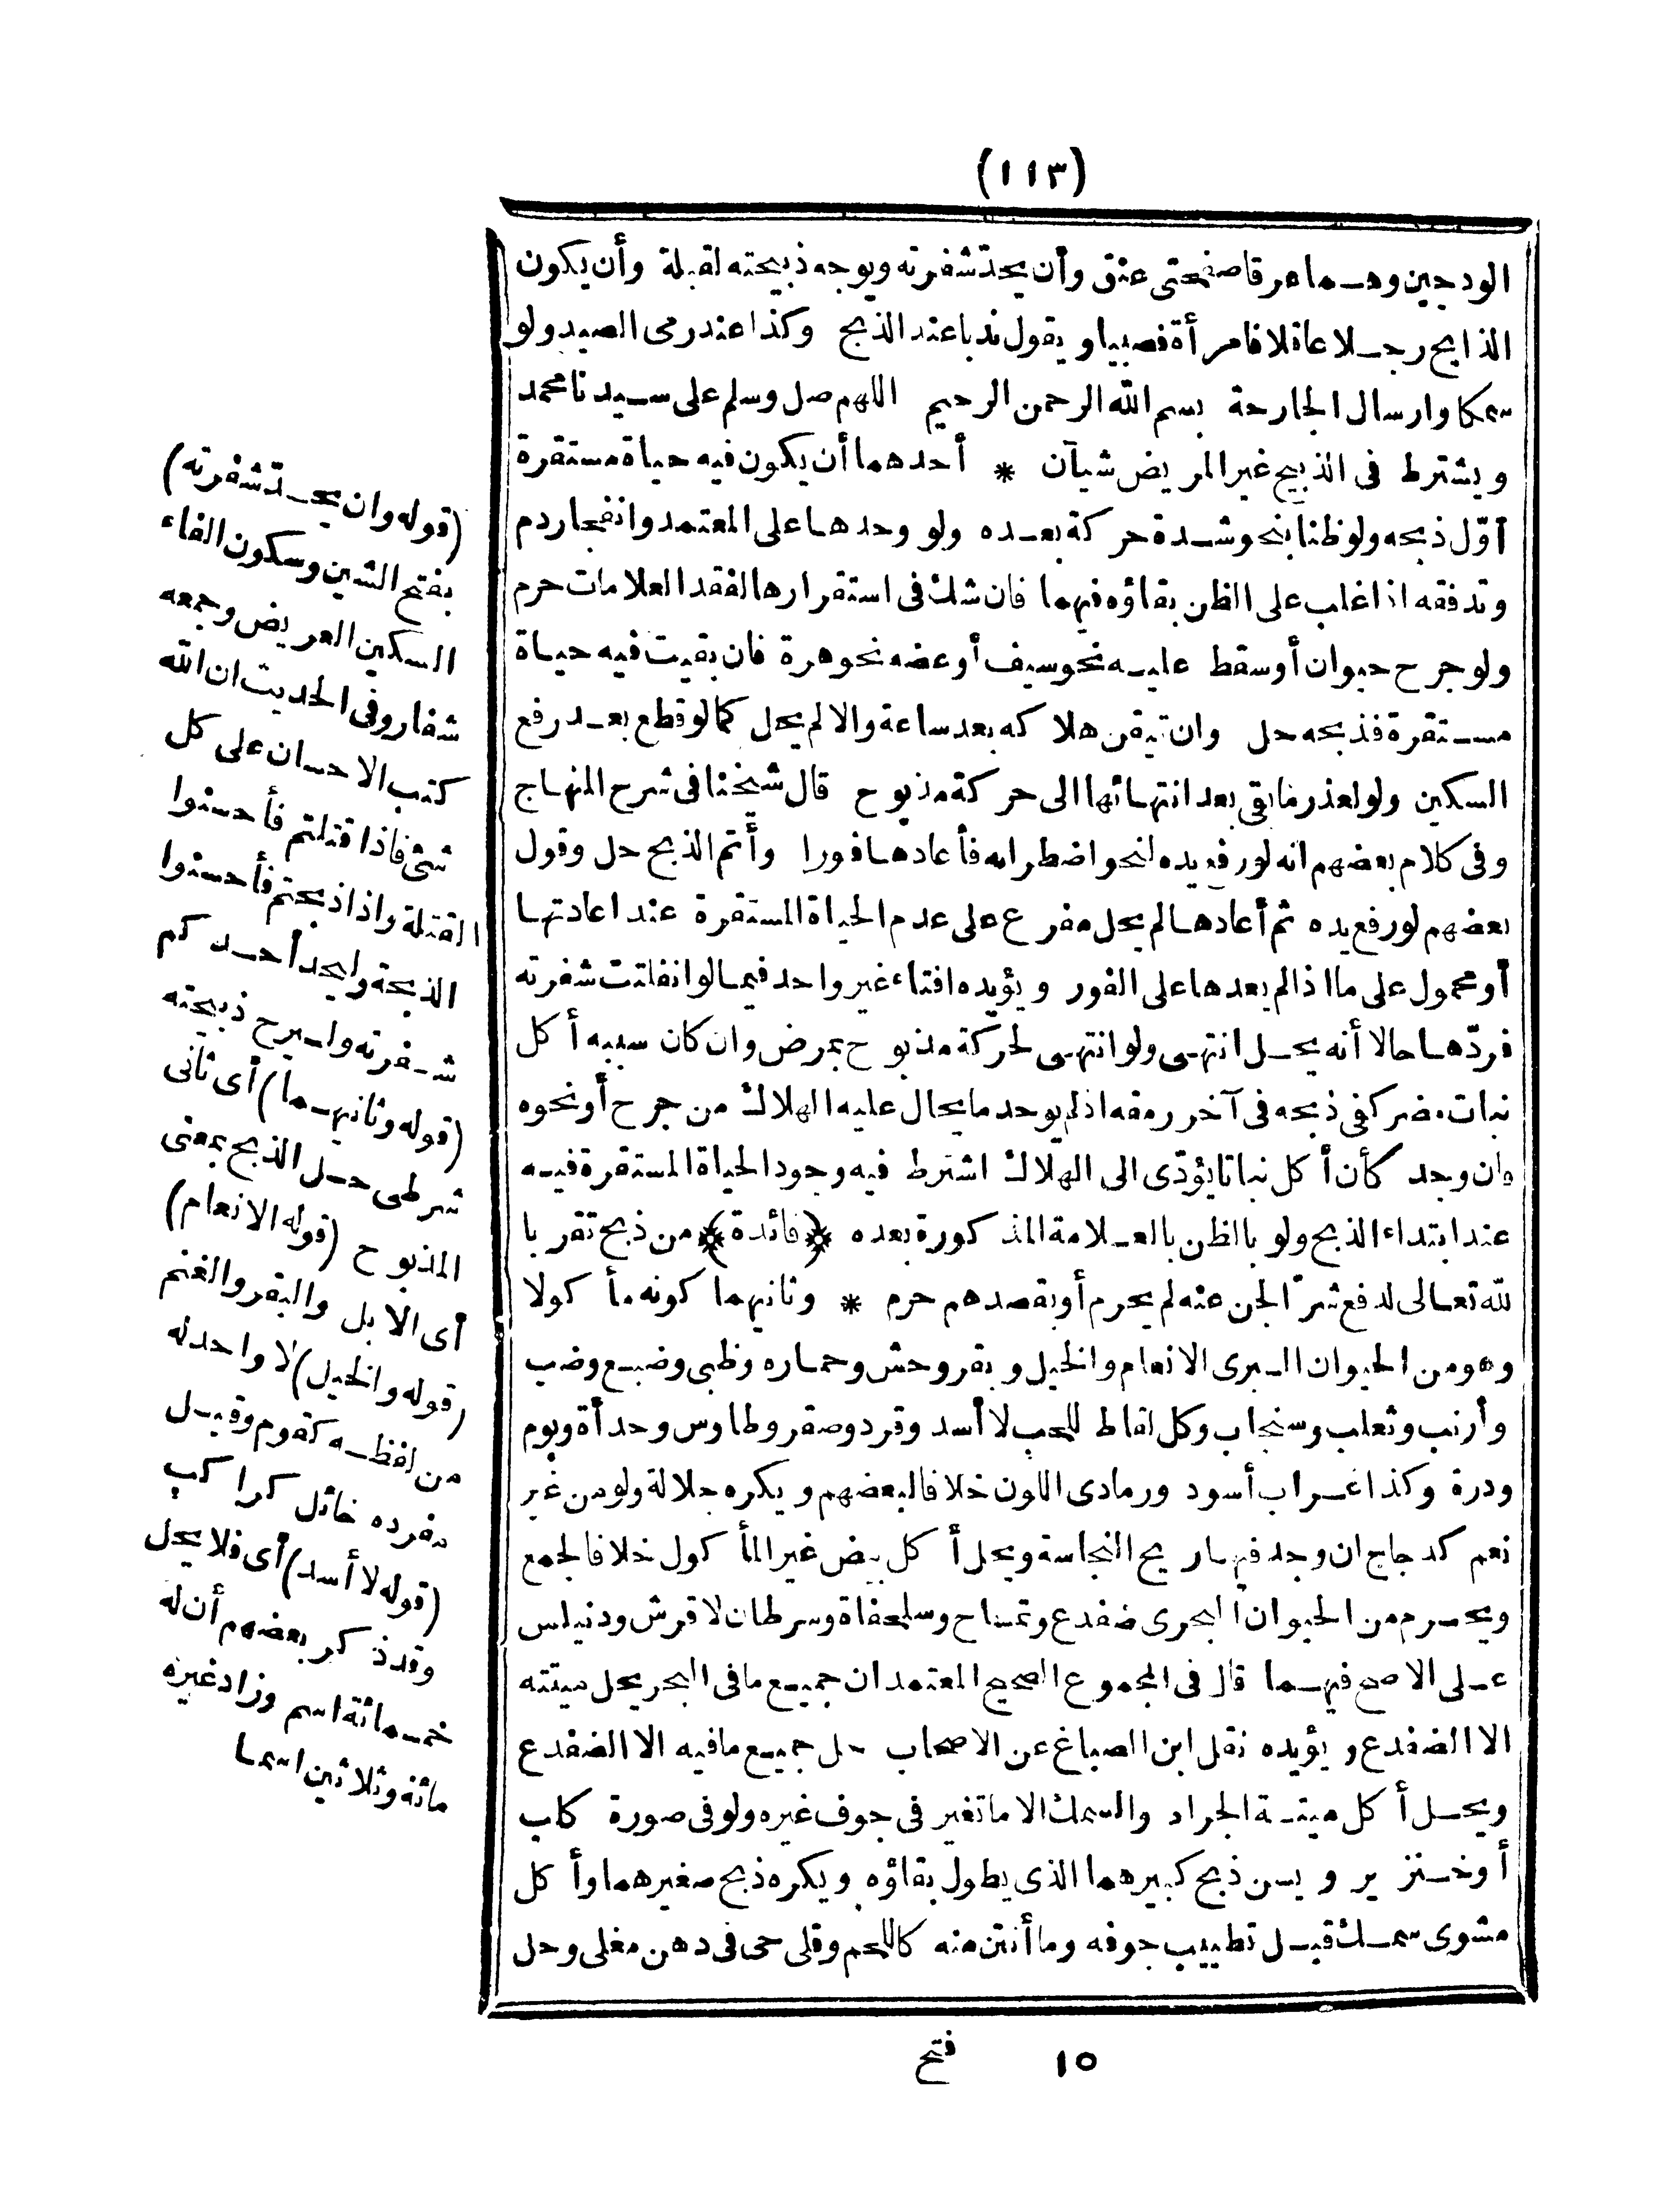 (١١٣)
الودجين وهما عرقا صفحتى عنق وأن يحدّ شفرته ويوجه ذبيحته لقبلة وأن يكون
الذابح رجلا عاقلا فامرأة فصبيا ويقول ندبا عند الذبح وكذا عند رمى الصيد ولو
سمكا وارسال الجارحة بسم الله الرحمن الرحيم اللهم صل وسلم على سيدنا محمد
ويشترط فى الذبيح غير المريض شيآن * أحدهما أن يكون فيه حياة مستقرة
أوّل ذبحه ولو ظنا بنحو شدة حركة بعده ولو وحدها على المعتمد وانفجار دم
وتدفقه اذا غلب على الظن بقاؤه فيهما فان شك فى استقرارها لفقد العلامات حرم
ولو جرح حيوان أو سقط عليه نحو سيف أو عضه نحو هرة فان بقيت فيه حياة
مستقرة فذبحه حل وان تيقن هلاكه بعد ساعة والا لم يحل كما لو قطع بعد رفع
السكين ولو لعذر ما بقى بعد انتهائها الى حركة مذبوح قال شيخنا فى شرح المنهاج
وفى كلام بعضهم انه لو رفع يده لنحو اضطرابه فأعادها فورا وأتم الذبح حل وقول
بعضهم لو رفع يده ثم أعادها لم يحل مفرع على عدم الحياة المستقرة عند اعادتها
أو محمول على ما اذا لم يعدها على الفور ويؤيده افتاء غير واحد فيما لو انفلتت شفرته
فردّها حالا أنه يحل انتهى ولو انتهى لحركة مذبوح بمرض وان كان سببه أكل
نبات مضر كفى ذبحه فى آخر رمقه اذ لم يوجد ما يحال عليه الهلاك من جرح أو نحوه
فان وجد كأن أكل نباتا يؤدّى الى الهلاك اشترط فيه وجود الحياة المستقرة فيه
عند ابتداء الذبح ولو بالظن بالعلامة المذكورة بعده ﴿فائدة﴾ من ذبح تقربا
لله تعالى لدفع شرّ الجن عنه لم يحرم أو بقصدهم حرم * وثانيهما كونه مأكولا
وهو من الحيوان البرى الانعام والخيل وبقر وحش وحماره وظبى وضبع وضب
وأرنب وثعلب وسنجاب وكل لقاط للحب لا أسد وقرد وصقر وطاوس وحدأة وبوم
ودرة وكذا غراب أسود ورمادى اللون خلافا لبعضهم ويكره جلالة ولو من غير
نعم كدجاج ان وجد فيها ريح النجاسة ويحل أكل بيض غير المأكول خلافا لجمع
ويحرم من الحيوان البحرى ضفدع وتمساح وسلحفاة وسرطان لا قرش ودنيلس
على الاصح فيهما قال فى المجموع الصحيح المعتمد ان جميع ما فى البحر يحل ميتته
الا الضفدع ويؤيده نقل ابن الصباغ عن الاصحاب حل جميع ما فيه الا الضفدع
ويحل أكل ميتة الجراد والسمك الا ما تغير فى جوف غيره ولو فى صورة كلب
أو خنزير ويسن ذبح كبيرهما الذى يطول بقاؤه ويكره ذبح صغيرهما وأكل
مشوى سمك قبل تطييب جوفه وما أنتن منه كاللحم وقلى حى فى دهن مغلى وحل
(قوله وان يحدّ شفرته)
بفتح الشين وسكون الفاء
السكين العريض وجمعه
شفار وفى الحديث ان الله
كتب الاحسان على كل
شئ فاذا قتلتم فأحسنوا
القتلة واذا ذبحتم فأحسنوا
الذبحة وليحد أحدكم
شفرته وليرح ذبيحته
(قوله وثانيهما) أى ثانى
شرطى حل الذبح بمعنى
المذبوح (قوله الانعام)
أى الابل والبقر والغنم
(قوله والخيل) لا واحد له
من لفظه كقوم وقيل
مفرده خائل كراكب
(قوله لا أسد) أى فلا يحل
وقد ذكر بعضهم أن له
خمسمائة اسم وزاد غيره
مائة وثلاثين اسما
١٥ فتح